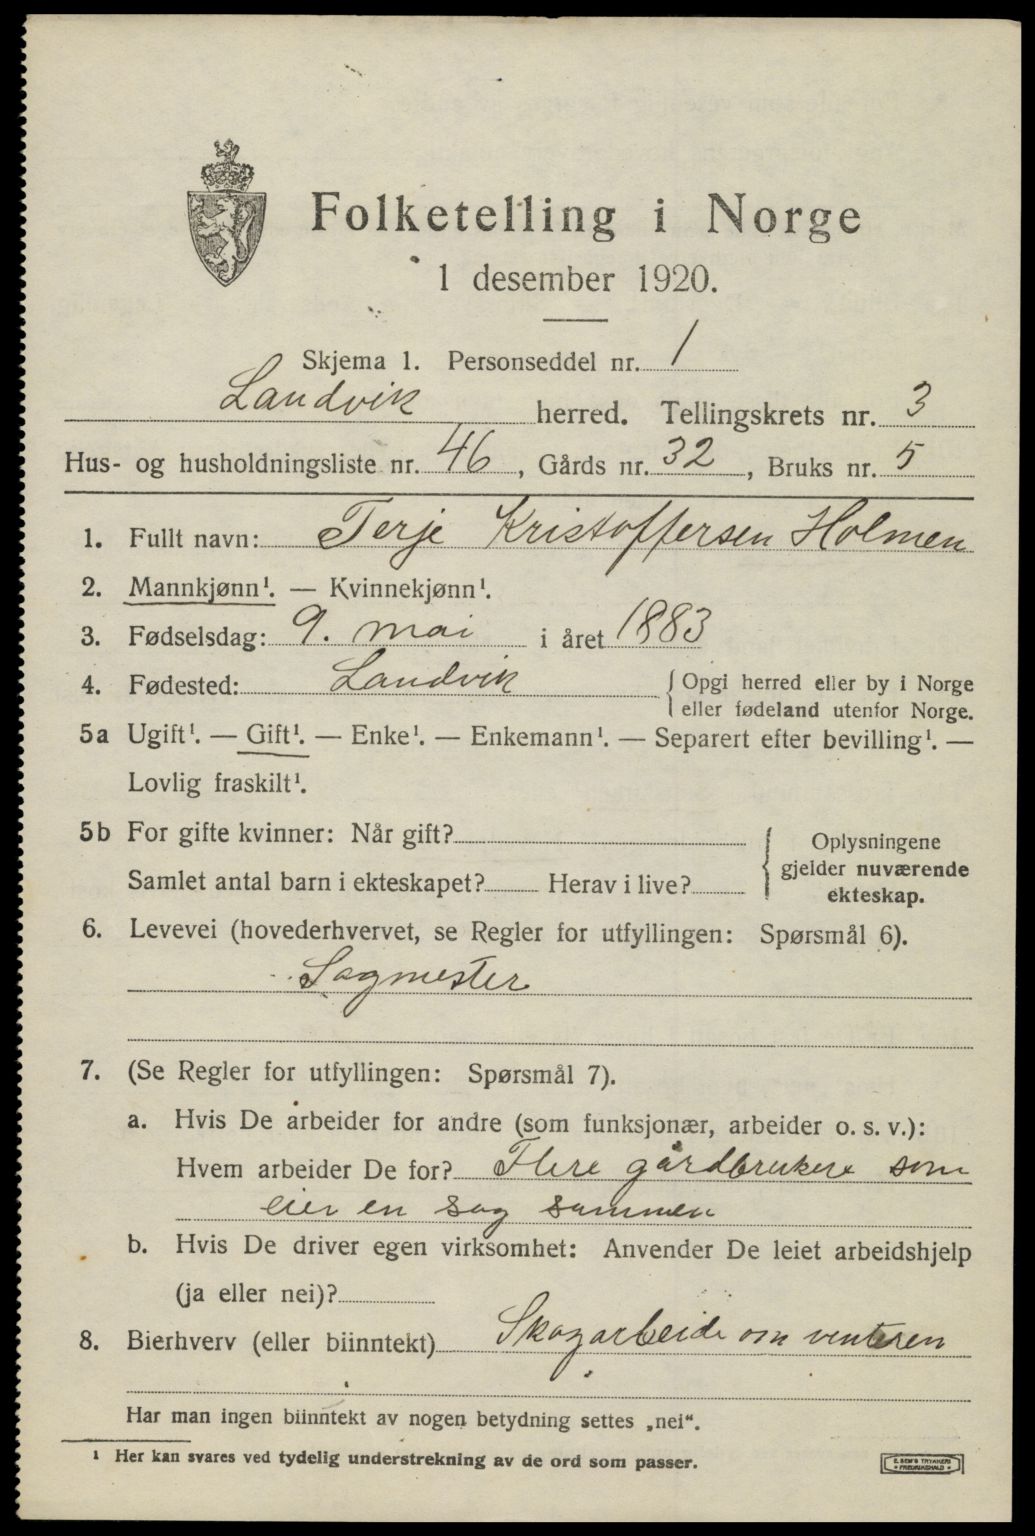 Folketelling i Norge
1 desember 1920.
Skjema 1. Personseddel nr. 1
Landvik herred. Tellingskrets nr. 3
Hus- og husholdningsliste nr. 46, Gårds nr. 32, Bruks nr. 5
1. Fullt navn: Terje Kristoffersen Holmen
2. Mannkjønn¹. — Kvinnekjønn¹.
3. Fødselsdag: 9. mai i året 1883
4. Fødested: Landvik { Opgi herred eller by i Norge
eller fødeland utenfor Norge.
5a Ugift¹. — Gift¹. — Enke¹. — Enkemann¹. — Separert efter bevilling¹. —
Lovlig fraskilt¹.
5b For gifte kvinner: Når gift?
Samlet antal barn i ekteskapet? Herav i live?
{ Oplysningene
gjelder nuværende
ekteskap.
6. Levevei (hovederhvervet, se Regler for utfyllingen: Spørsmål 6).
Sagmester
7. (Se Regler for utfyllingen: Spørsmål 7).
a. Hvis De arbeider for andre (som funksjonær, arbeider o. s. v.):
Hvem arbeider De for? Flere gårdbrukere som
eier en sag sammen
b. Hvis De driver egen virksomhet: Anvender De leiet arbeidshjelp
(ja eller nei)?
8. Bierhverv (eller biinntekt) Skogarbeide om vinteren
Har man ingen biinntekt av nogen betydning settes „nei“.
¹ Her kan svares ved tydelig understrekning av de ord som passer.
E. SEM'S TRYKKERI
FREDRIKSHALD